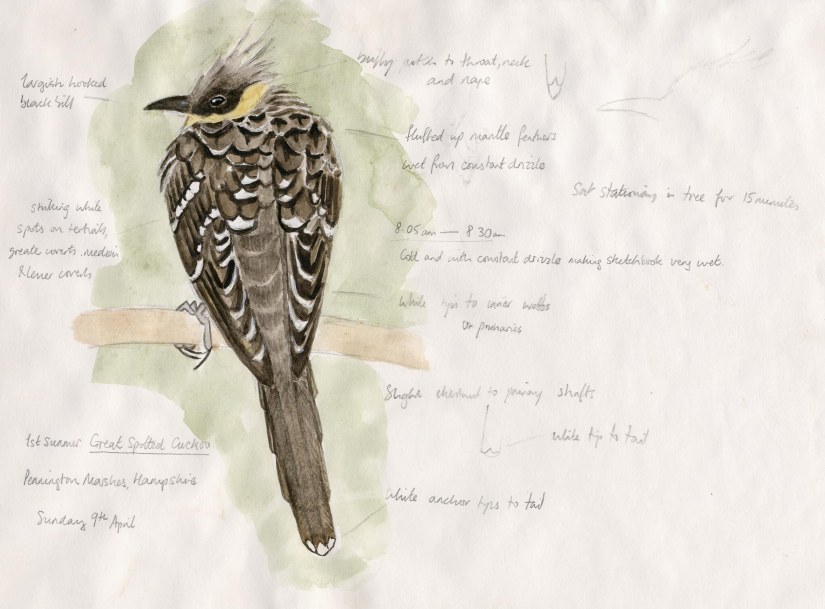 buffy patch to throat, neck
and nape
largish hooked
black bill
fluffed up mantle feathers
wet from constant drizzle
Sat stationary in tree for 15 minutes
striking white
spots on tertials,
greater coverts, median
& lesser coverts
8:05am — 8 30am
Cold and with constant drizzle making sketchbook very wet.
White tips to inner webbs
on primaries
Slight chestnut to primary shafts
white tip to tail
1st Summer Great Spotted Cuckoo
Pennington Marshes, Hampshire
White anchor tips to tail
Sunday 9th April